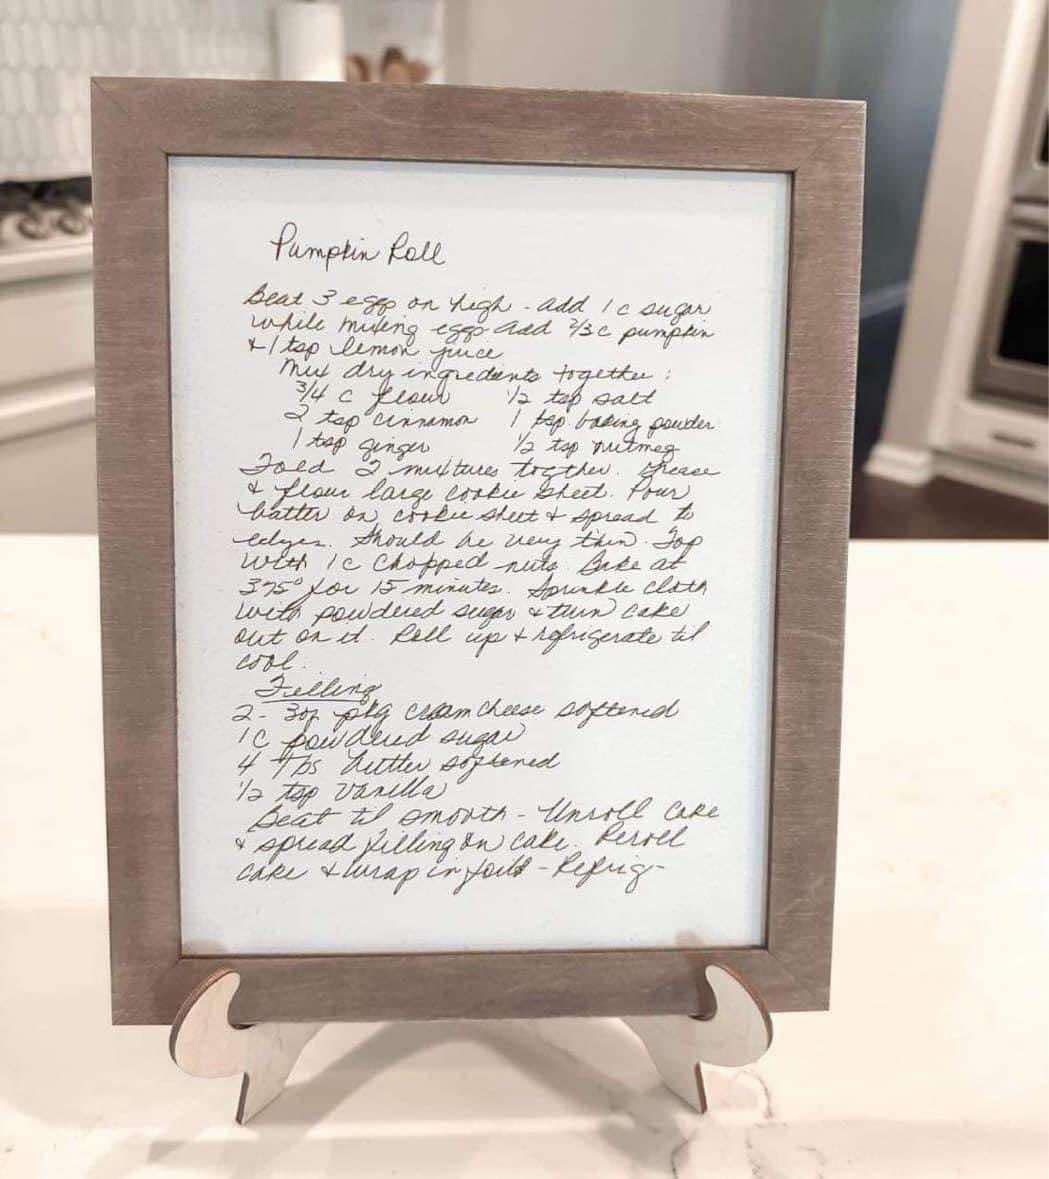 Pumpkin Roll
Beat 3 eggs on high - add 1 c sugar
while mixing eggs - add 2/3 c pumpkin
+ 1 tsp lemon juice
Mix dry ingredients together:
3/4 c flour 1/2 tsp salt
2 tsp cinnamon 1 tsp baking powder
1 tsp ginger 1/2 tsp nutmeg
Fold 2 mixtures together. Grease
& flour large cookie sheet. Pour
batter on cookie sheet & spread to
edges. Should be very thin. Top
with 1c chopped nuts. Bake at
375° for 15 minutes. Sprinkle cloth
with powdered sugar & turn cake
out on it. Roll up & refrigerate til
cool.
Filling
2 - 3oz pkg cream cheese softened
1c powdered sugar
4 Tbs butter softened
1/2 tsp vanilla
Beat til smooth - Unroll cake
& spread filling on cake. Reroll
cake & wrap in foil - Refrig -